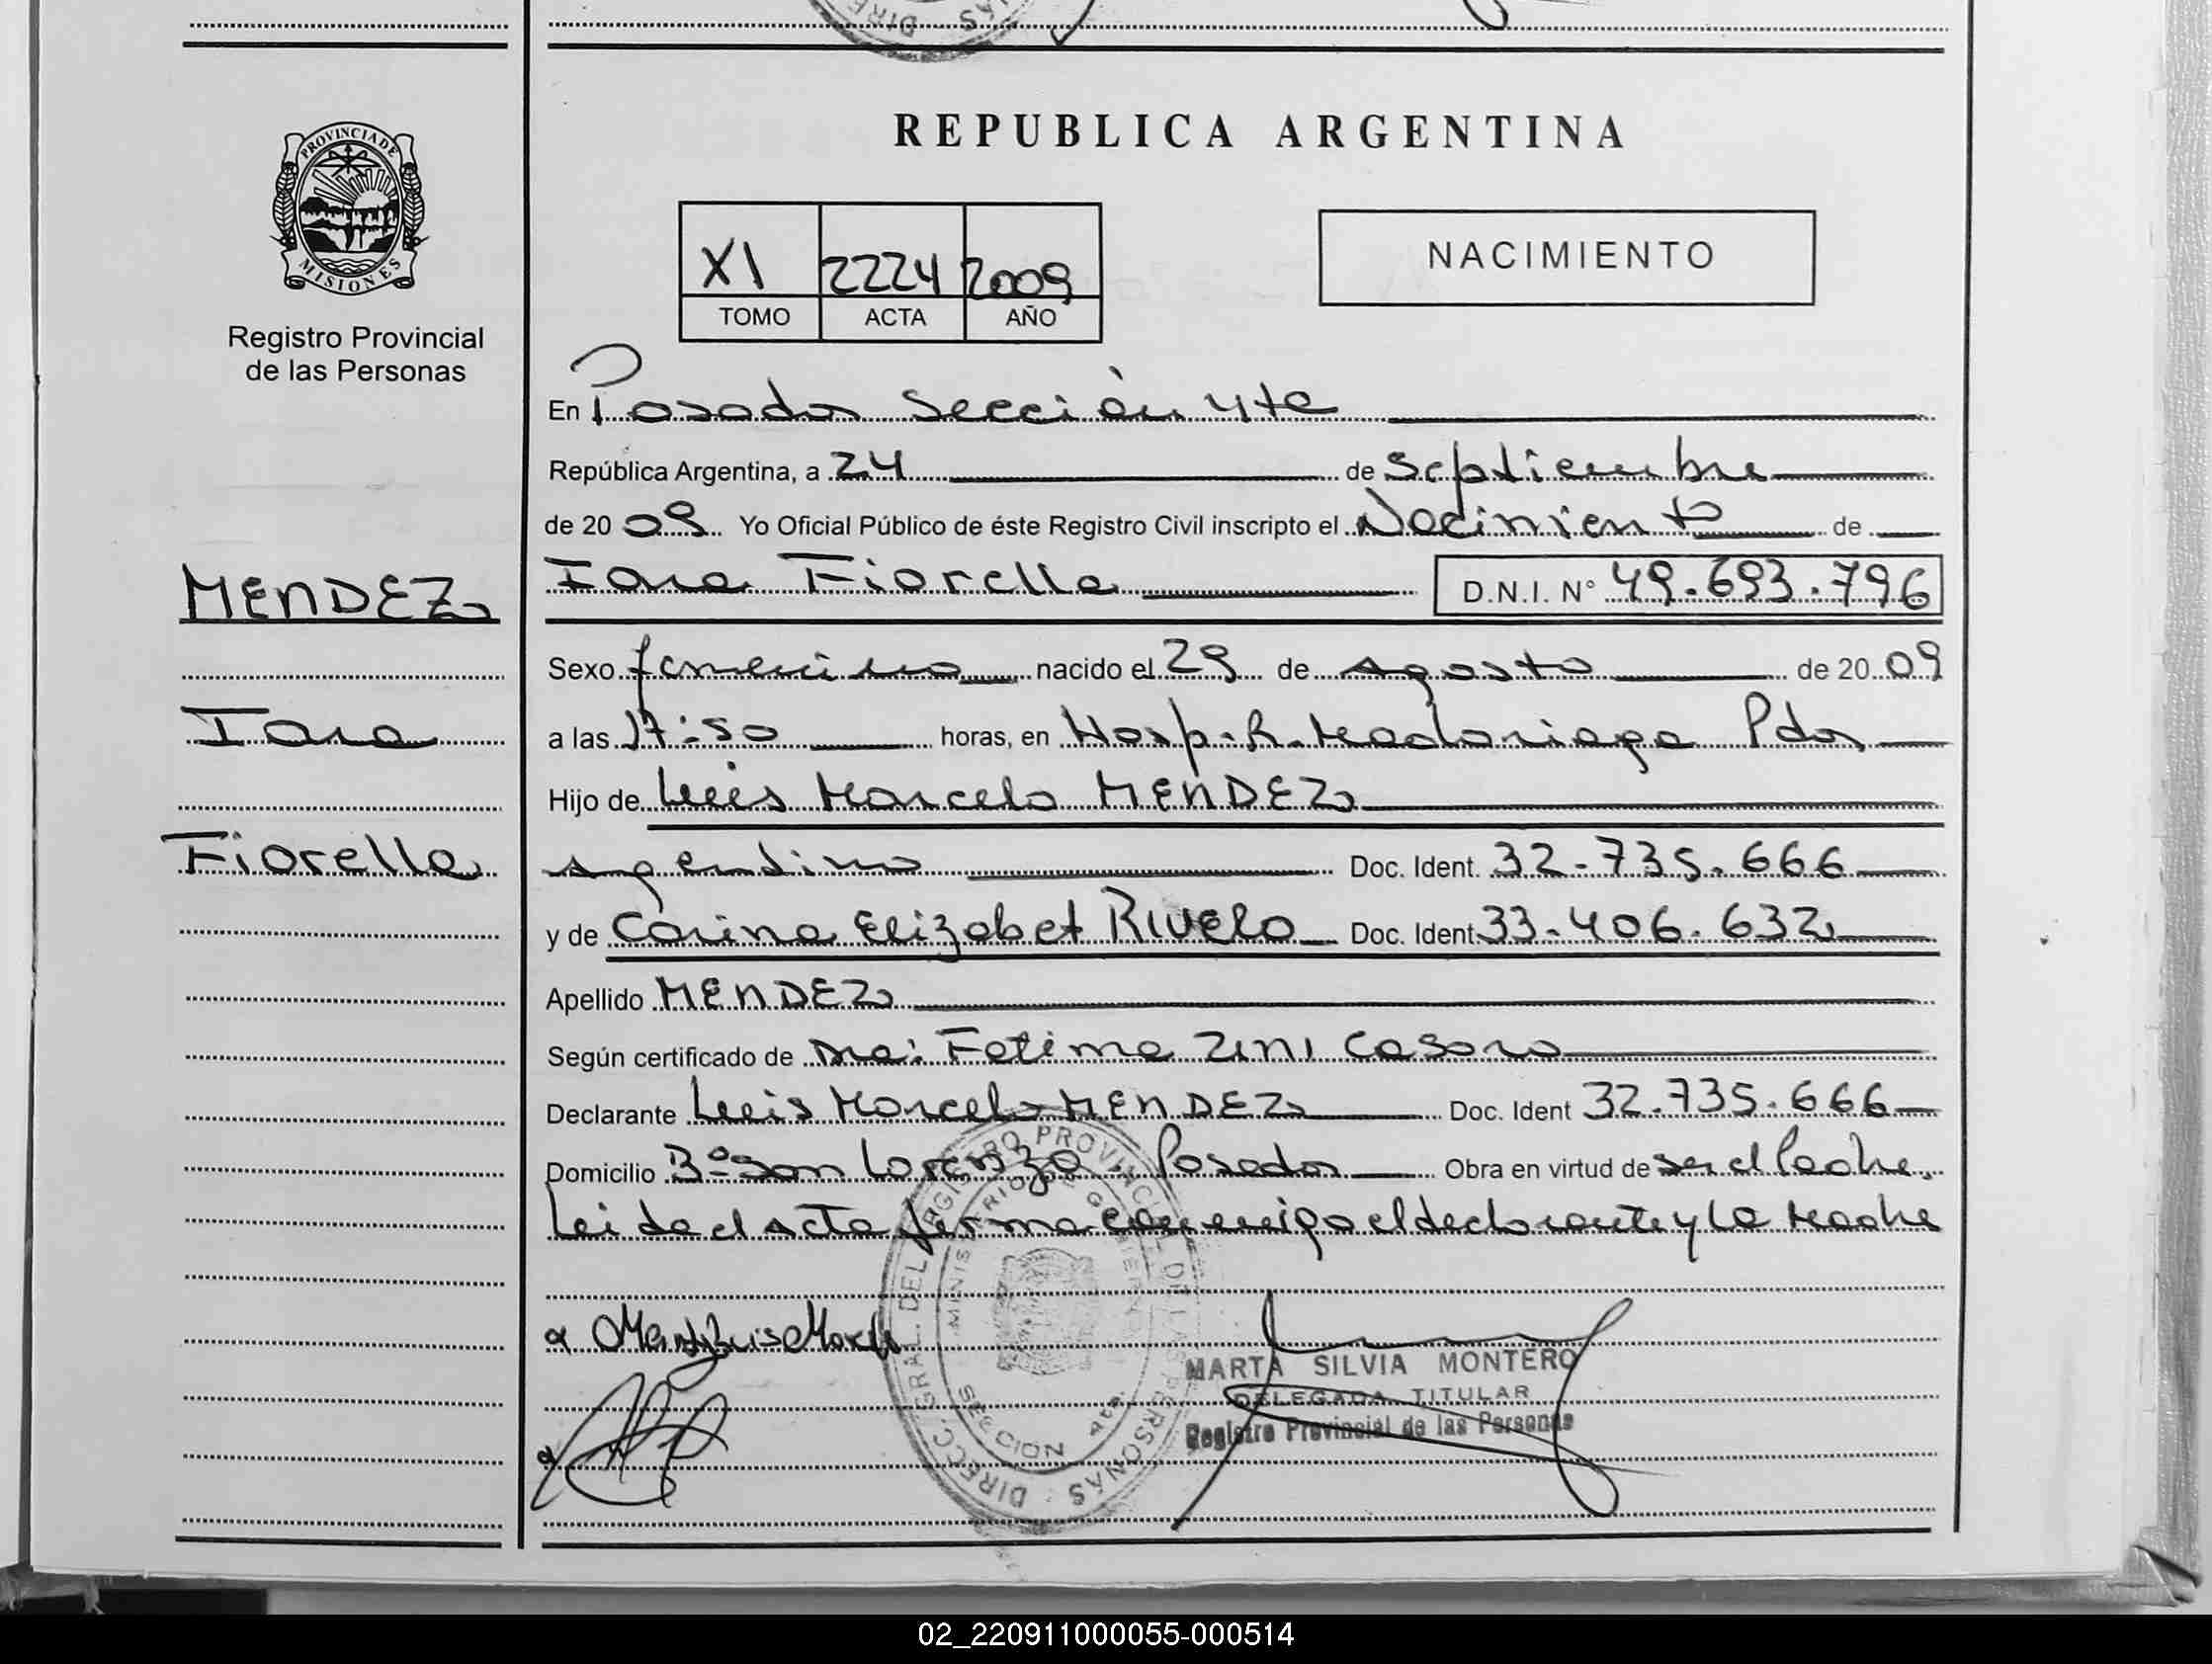 PROVINCIA DE
MISIONES
Registro Provincial
de las Personas
MENDEZ
Iara
Fiorella
REPUBLICA ARGENTINA
XI 2224 2009
TOMO ACTA AÑO
NACIMIENTO
En Posadas Sección 4ta
República Argentina, a 24 de Septiembre
de 20 09 Yo Oficial Público de éste Registro Civil inscripto el Nacimiento de
Iara Fiorella D.N.I. N° 49.693.796
Sexo femenino nacido el 29 de Agosto de 20 09
a las 17:50 horas, en Hosp. R. Madariaga Pdas
Hijo de Luis Marcelo MENDEZ
Argentino Doc. Ident. 32-735.666
y de Carina Elizabet RIVERO Doc. Ident 33-406.632
Apellido MENDEZ
Según certificado de Fatima Zini Casaro
Declarante Luis Marcelo MENDEZ Doc. Ident 32.735.666
Domicilio B° San Lorenzo - Posadas Obra en virtud de ser el Padre.
Leida el Acta firma conmigo el declarante y la Madre
DIRECC. GRAL. DEL REGISTRO PROVINCIAL DE LAS PERSONAS
MINISTERIO DE GOBIERNO
SECCION 4ta.
MARTA SILVIA MONTERO
DELEGADA TITULAR
Registro Provincial de las Personas
02_220911000055-000514